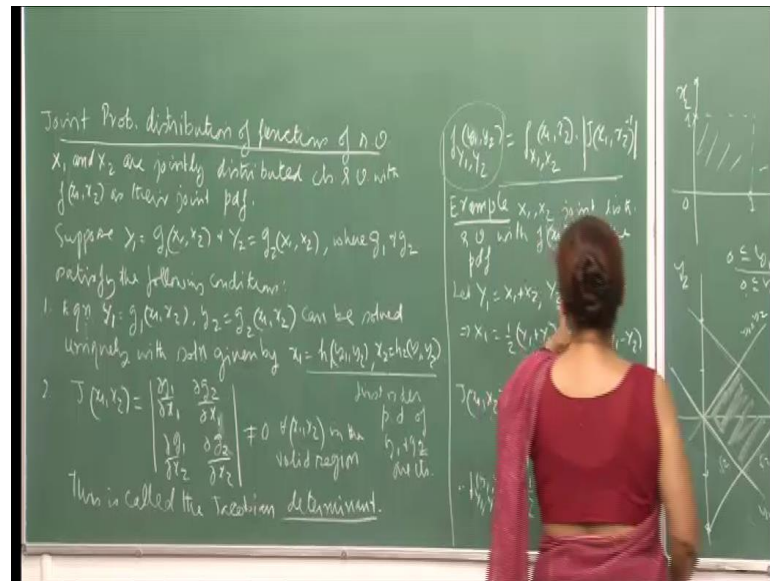 Joint Prob. distribution of function of r v
X₁ and X₂ are jointly distributed cts r v. with
f(x₁, x₂) as their joint pdf.
Suppose Y₁ = g₁(x₁, x₂) & Y₂ = g₂(x₁, x₂), where g₁ & g₂
satisfy the following conditions:
1. Eqn Y₁ = g₁(x₁, x₂), y₂ = g₂(x₁, x₂) can be solved
uniquely with soln given by x₁ = h₁(y₁, y₂), x₂ = h₂(y₁, y₂)
2. J(x₁, x₂) = | ∂g₁/∂x₁ ∂g₂/∂x₁ |
| ∂g₁/∂x₂ ∂g₂/∂x₂ | ≠ 0 ∀ (x₁, x₂) in the
valid region
first order
p.d of
g₁ & g₂
are cts.
This is called the Jacobian determinant.
f_{Y₁,Y₂}(y₁, y₂) = f_{X₁,X₂}(x₁, x₂) · |J(x₁, x₂)⁻¹|
Example X₁, X₂ joint
r v with
pdf
Let Y₁ = X₁+X₂, Y₂
⇒ X₁ = ½(Y₁+Y₂)
J(x₁, x₂
x₂
1
0
y₂
0 ≤ y₁